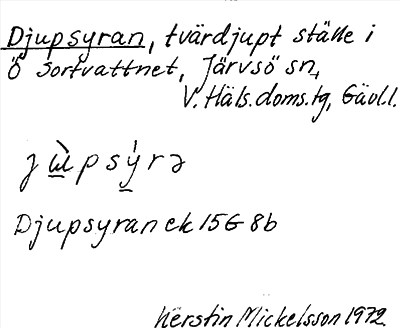 Djupsyran, tvärdjupt ställe i
Ö Sortvattnet, Järvsö sn,
V. Häls. doms.tg, Gävl.l.
jɯ̀psýrə
Djupsyran ek 15G 8b
Kerstin Mickelsson 1972